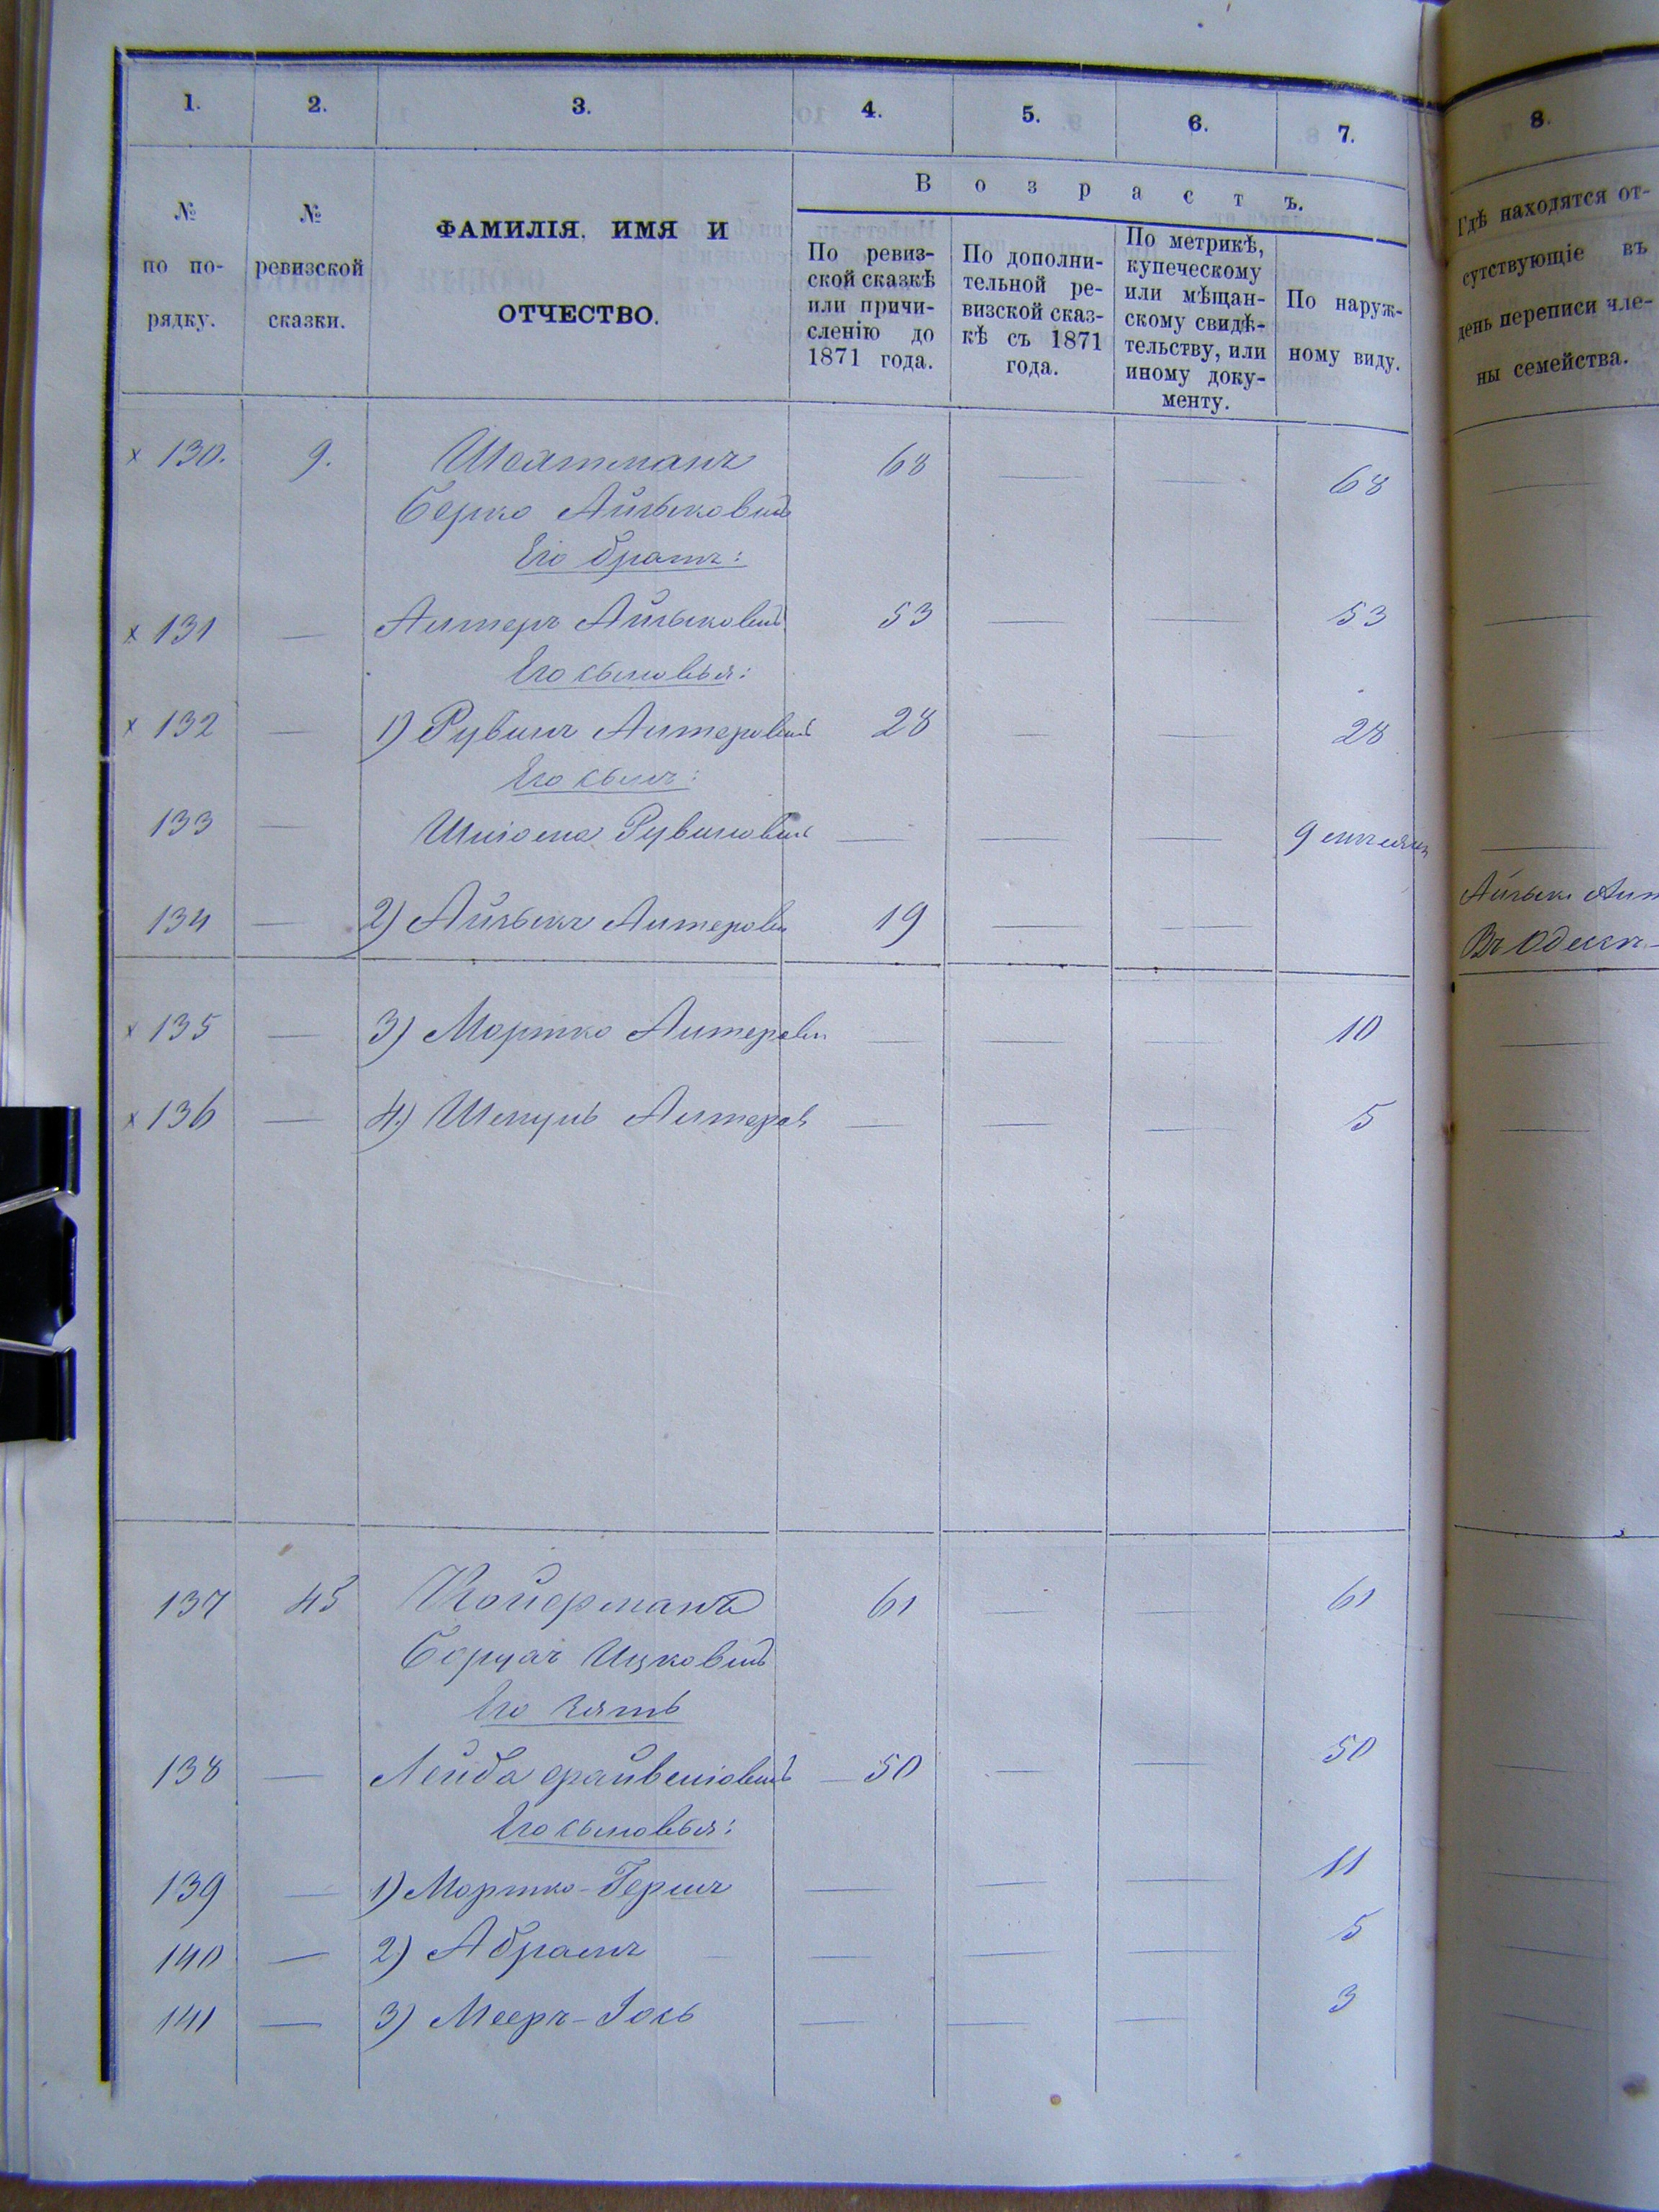 1. 2. 3. 4. 5. 6. 7. 8.
№ по порядку.
№ ревизской сказки.
ФАМИЛІЯ, ИМЯ И
ОТЧЕСТВО.
Возрастъ.
По ревиз-
ской сказкѣ
или причи-
сленію до
1871 года.
По дополни-
тельной ре-
визской сказ-
кѣ съ 1871
года.
По метрикѣ,
купеческому
или мѣщан-
скому свидѣ-
тельству, или
иному доку-
менту.
По наруж-
ному виду.
Гдѣ находятся от-
сутствующіе въ
день переписи чле-
ны семейства.
х 130. 9. 68 — — 68 —
Берко Айзыковичъ
Его братъ:
х 131 — Алтеръ Айзыковичъ 53 — — 53 —
Его сыновья:
х 132 — 1) Рувинъ Алтеровичъ 28 — — 28 —
Его сынъ:
133 — Рувиновичъ — — — 9 —
134 — 2) Айзыкъ Алтеровъ 19 — — Айзыкъ
Въ Одессѣ —
х 135 — 3) Мортко Алтеровъ — — — 10 —
х 136 — 4) Шмуль Алтеровъ — — — 5 —
137 45 Койферманъ 61 — — 61 —
Ицковичъ
Его зять
138 — Лейба 50 — — 50 —
Его сыновья:
139 — 1) Мортко-Гершъ — — — 11 —
140 — 2) Абрамъ — — — 5 —
141 — 3) Мееръ-Іось — — — 3 —